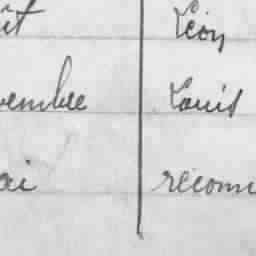 ût Léon
vembre Louis
ai reconn